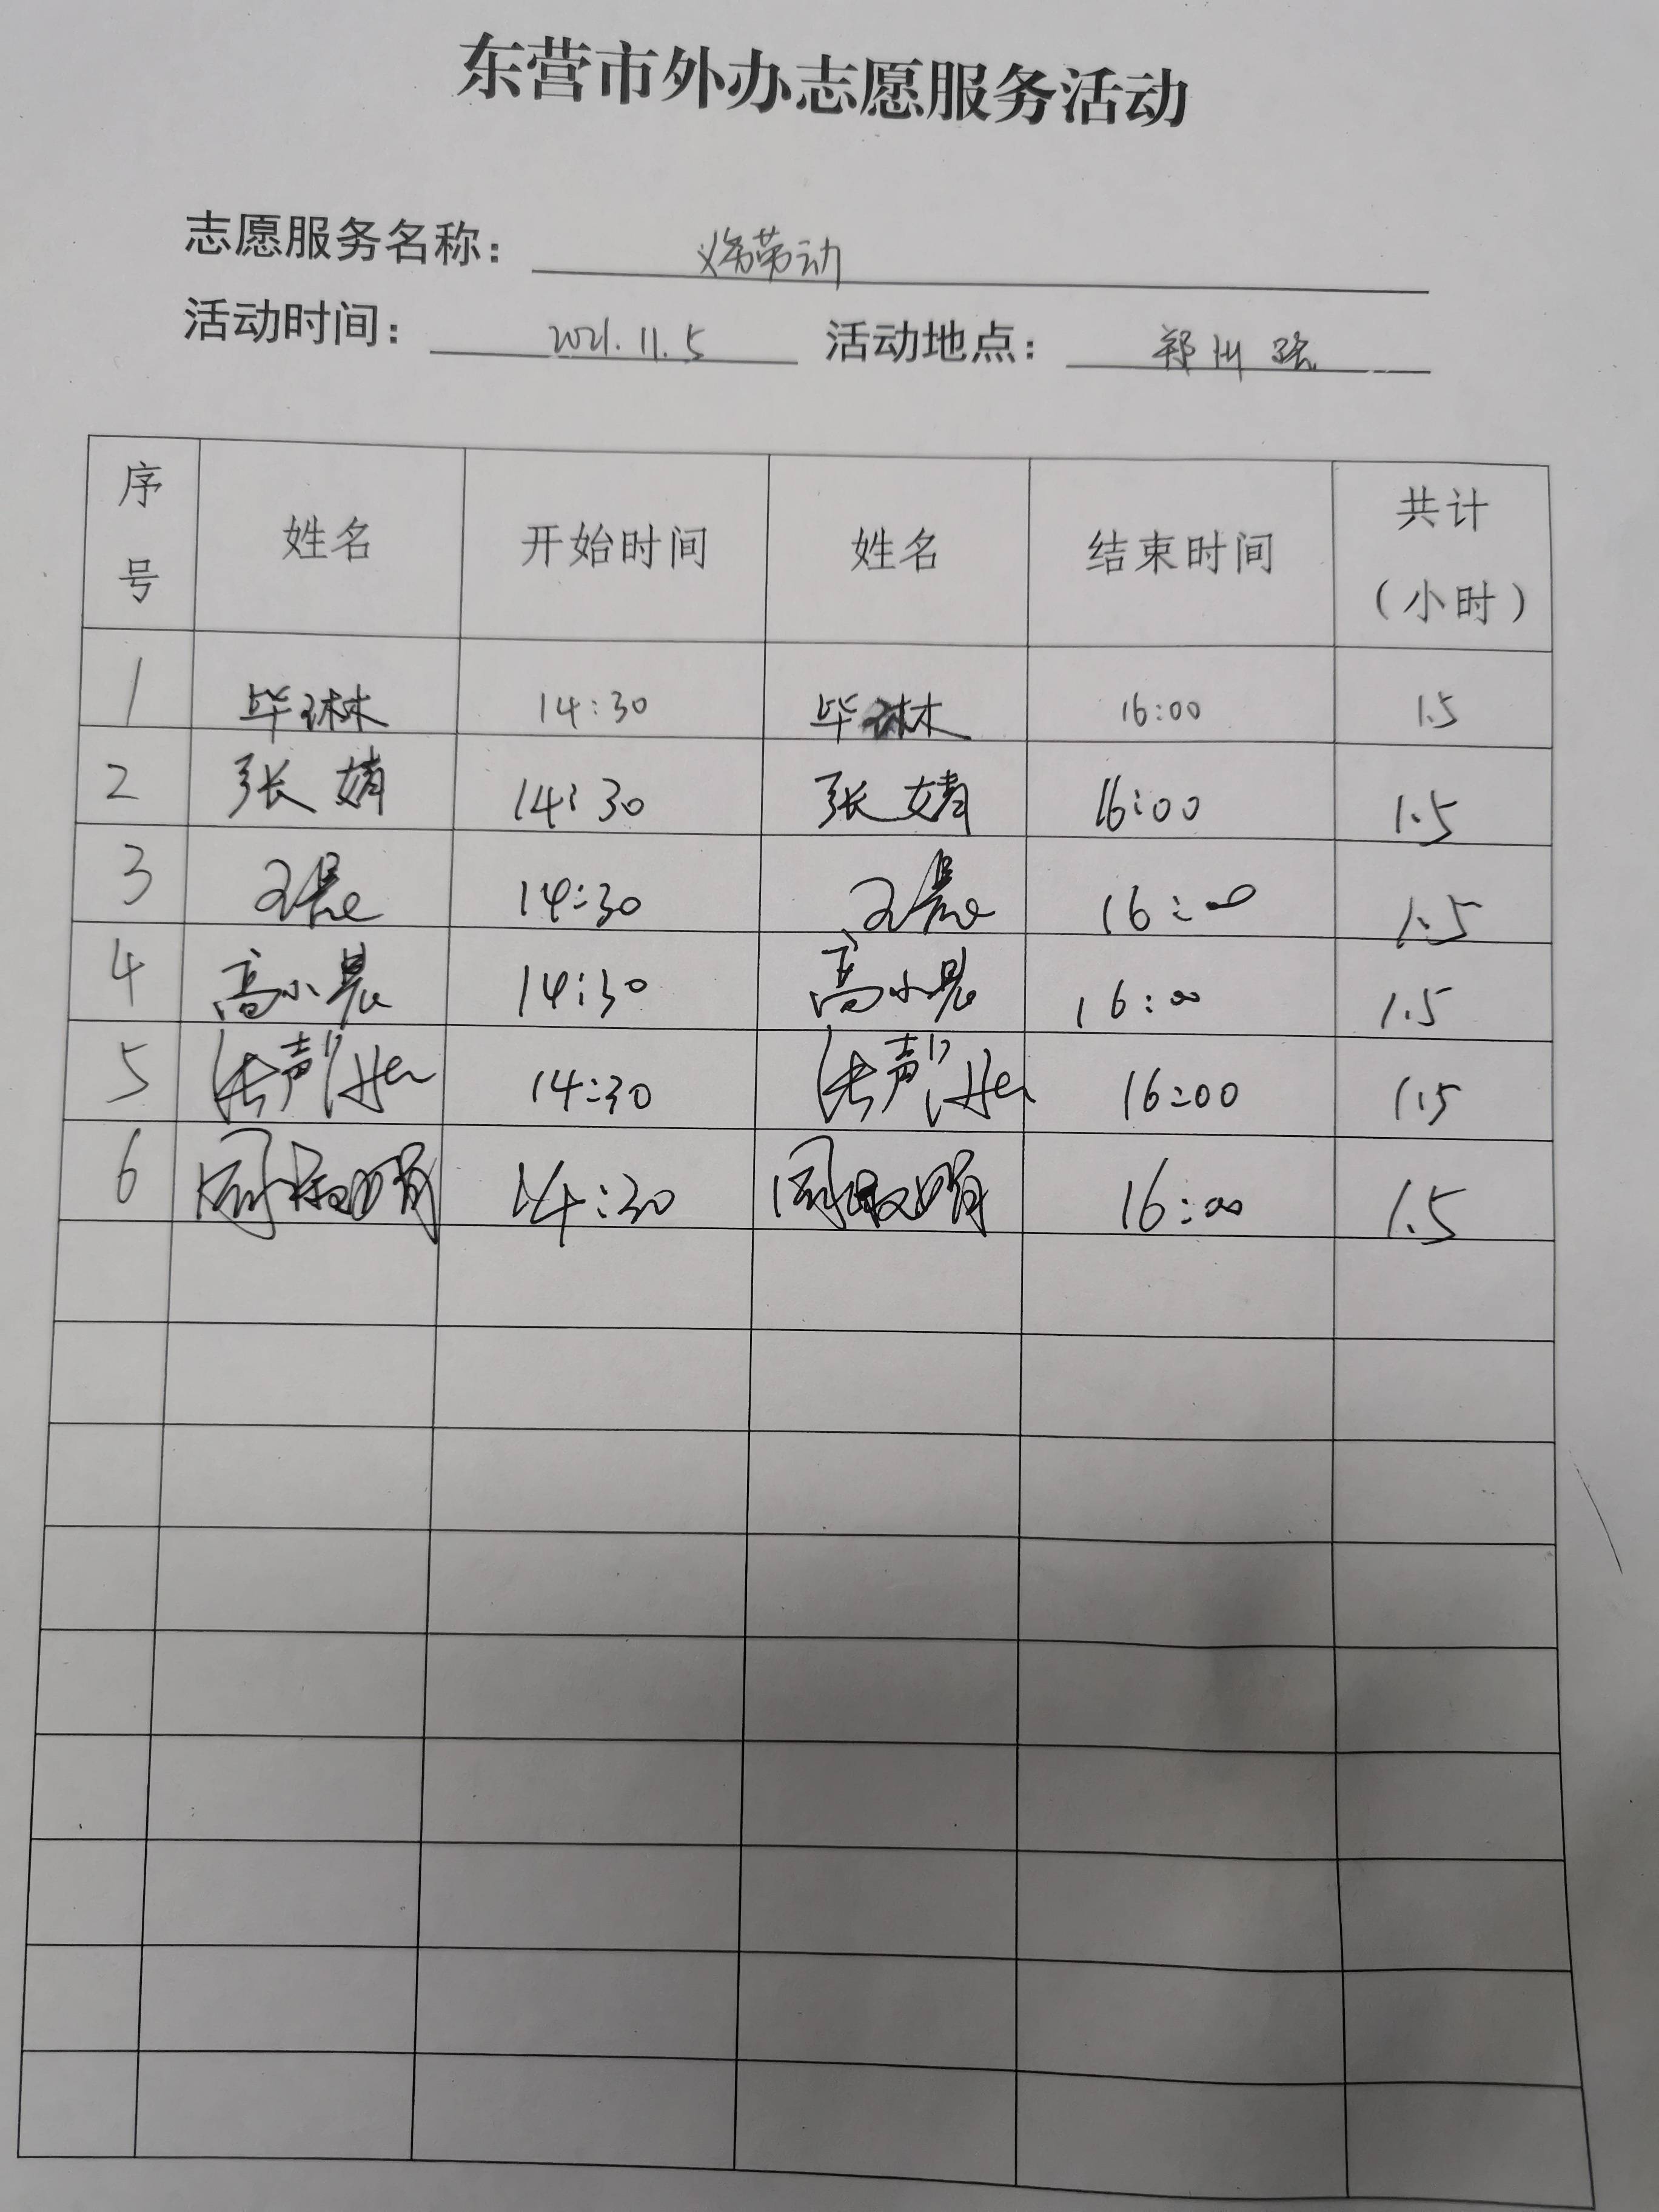 东营市外办志愿服务活动
志愿服务名称： 义务劳动
活动时间： 2021.11.5 活动地点： 郑州路
序号 姓名 开始时间 姓名 结束时间 共计（小时）
1 毕琳 14:30 毕琳 16:00 1.5
2 张婧 14:30 张婧 16:00 1.5
3 14:30 16:00 1.5
4 高小晨 14:30 高小晨 16:00 1.5
5 14:30 16:00 1.5
6 14:30 16:00 1.5